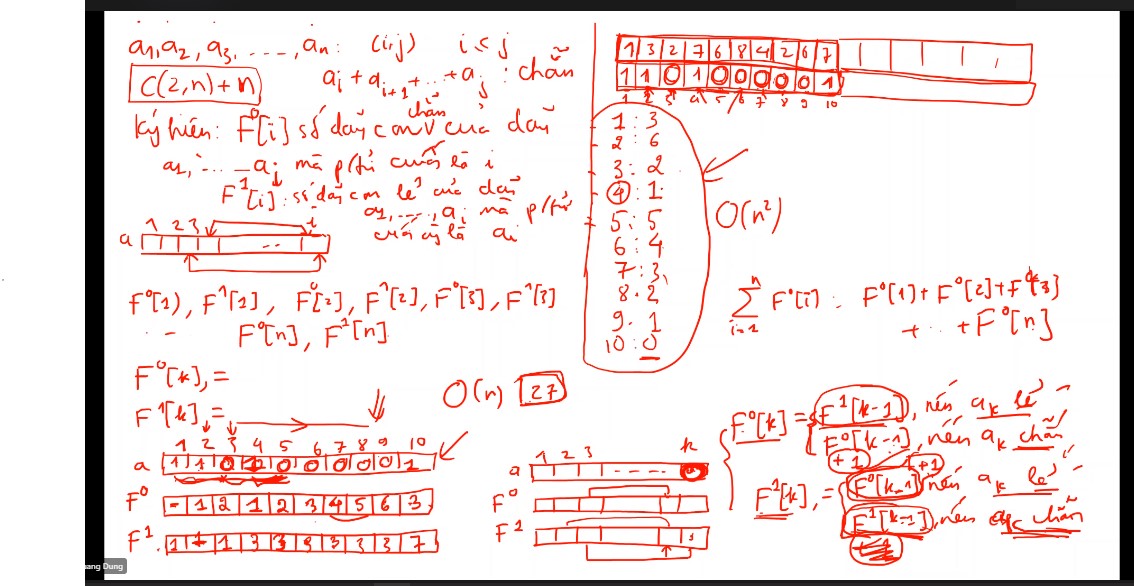 a₁, a₂, a₃, ...., aₙ : (i,j) i < j
C(2,n) + n
aᵢ + aᵢ₊₁ + .. + aⱼ : chẵn
ký hiệu: F⁰[i] số dãy con chẵn của dãy
a₁, ..... aᵢ mà p/tử cuối là i
F¹[i] : số dãy con lẻ của dãy
a₁, ...., aᵢ mà p/tử
cuối cg là aᵢ
1 2 3 i
a ...
F⁰[1], F¹[1], F⁰[2], F¹[2], F⁰[3], F¹[3]
.. - F⁰[n], F¹[n]
F⁰[k], =
F¹[k], =
O(n) 27
1 2 3 4 5 6 7 8 9 10
a 1 1 0 1 0 0 0 0 0 1
F⁰ - 1 2 1 2 3 4 5 6 3
F¹. 1 1 1 3 3 3 3 3 3 7
1 3 2 7 6 8 4 2 6 7
1 1 0 1 0 0 0 0 0 1
1 2 3 4 5 6 7 8 9 10
1 : 3
2 : 6
3 : 2
4 : 1
5 : 5
6 : 4
7 : 3
8 . 2
9 . 1
10 : 0
O(n²)
n
∑ F⁰[i] = F⁰[1] + F⁰[2] + F⁰[3]
i=1
+ .. + F⁰[n]
1 2 3 k
a - - - -
F⁰
F¹
F⁰[k] = F¹[k-1], nếu aₖ lẻ
F⁰[k-1], nếu aₖ chẵn
+1 +1
F¹[k], = F⁰[k-1] nếu aₖ lẻ
F¹[k-1], nếu aₖ chẵn
uang Dung